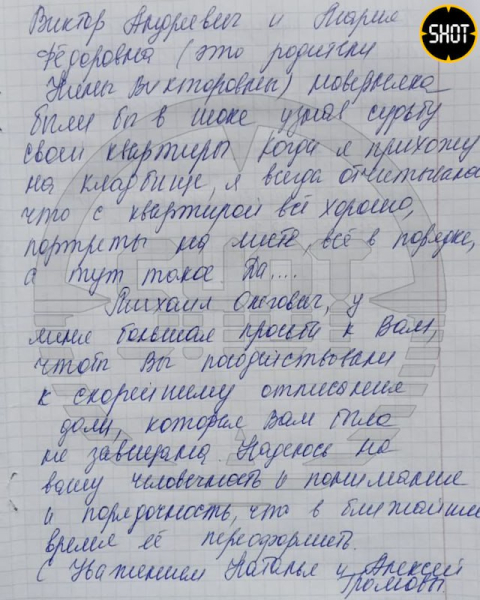 SHOT
Виктор Андреевич и Мария
Фёдоровна (это родители
Нины Викторовны) наверняка
были бы в шоке узнав судьбу
своей квартиры Когда я прихожу
на кладбище, я всегда отчитываюсь
что с квартирой всё хорошо,
портреты на месте, всё в порядке,
а тут такое Да....
Михаил Олегович, у
меня большая просьба к Вам,
чтобы Вы посодействовали
к скорейшему отписыния
доли, которая Вам была
не завещана Надеюсь на
вашу человечность и понимание
и порядочность, что в ближайшее
время её переоформить.
С Уважением Наталья и Алексей
Громовы